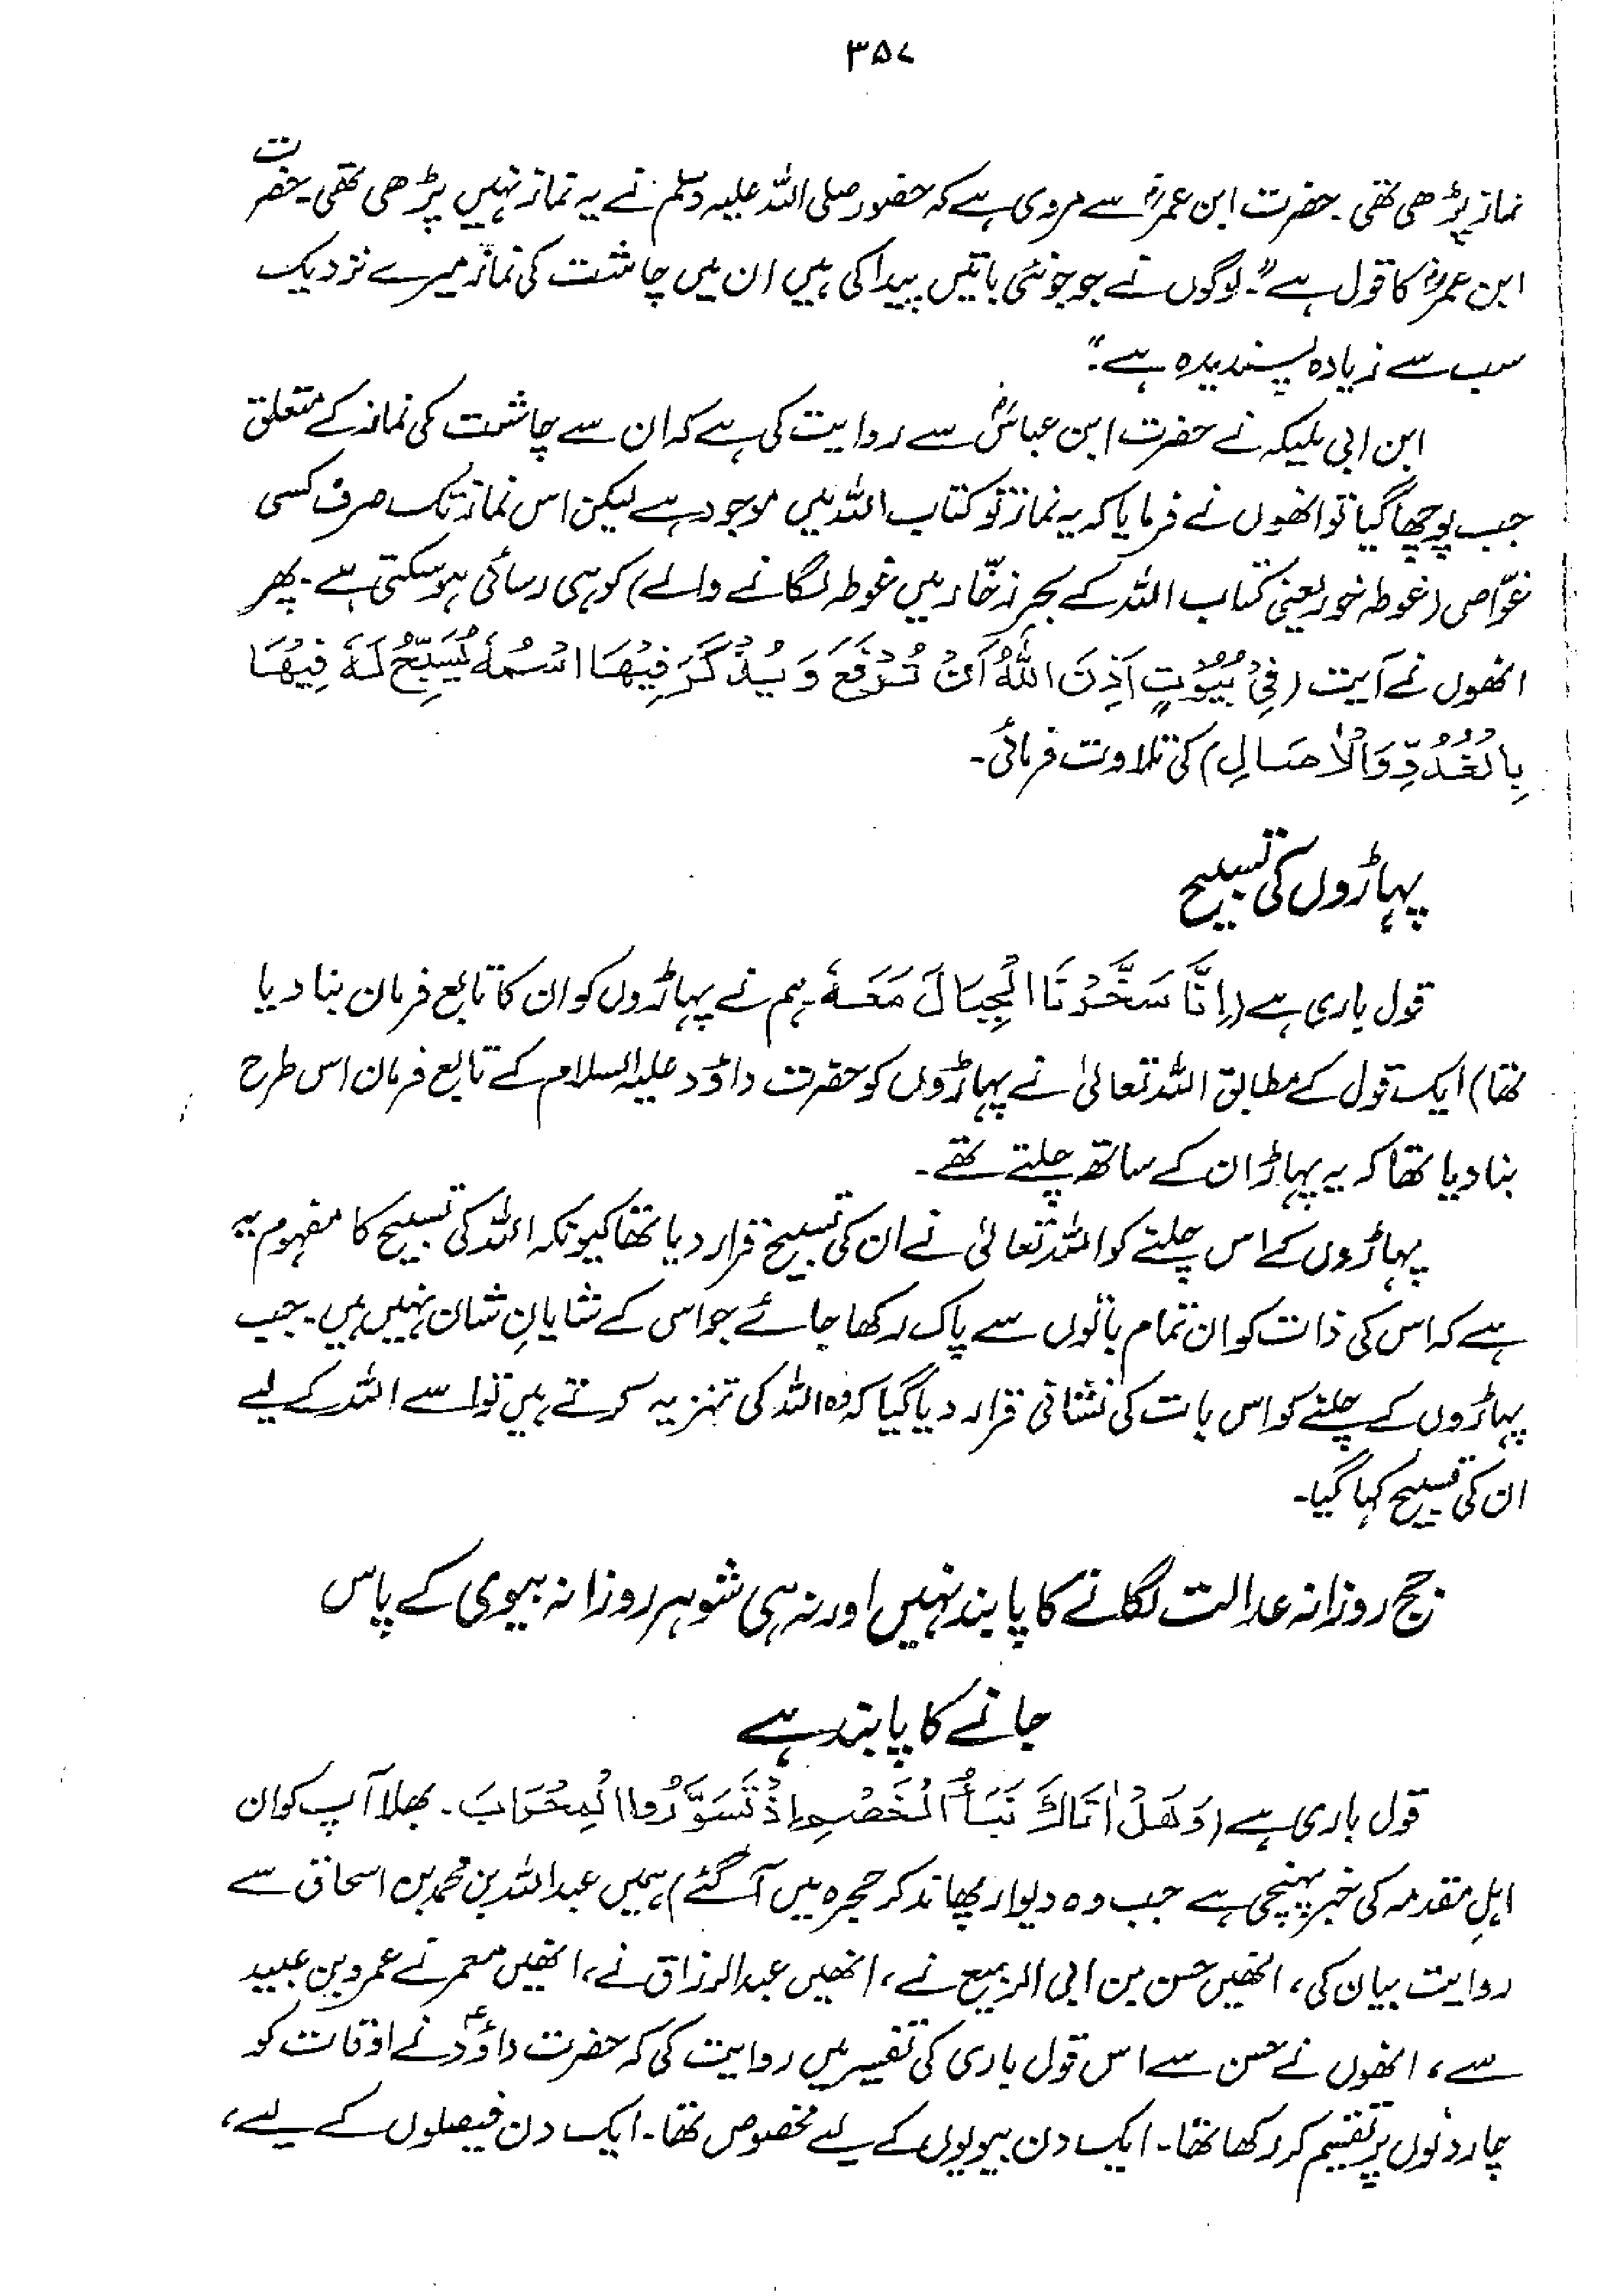 ۳۵۷
نماز پڑھی تھی۔ حضرت ابن عمرؓ سے مروی ہے کہ حضور صلی اللہ علیہ وسلم نے یہ نماز نہیں پڑھی تھی۔ حضرت
ابن عمرؓ کا قول ہے "لوگوں نے جو جو نئی باتیں پیدا کی ہیں ان میں چاشت کی نماز میرے نزدیک
سب سے زیادہ پسندیدہ ہے۔"
ابن ابی ملیکہ نے حضرت ابن عباسؓ سے روایت کی ہے کہ ان سے چاشت کی نماز کے متعلق
جب پوچھا گیا تو انھوں نے فرمایا کہ یہ نماز تو کتاب اللہ میں موجود ہے لیکن اس نماز تک صرف کسی
غوّاص (غوطہ خور یعنی کتاب اللہ کے بحرِ زخّار میں غوطہ لگانے والے) کو ہی رسائی ہو سکتی ہے۔ پھر
انھوں نے آیت (فِیْ بُیُوْتٍ اَذِنَ اللّٰهُ اَنْ تُرْفَعَ وَ یُذْکَرَ فِیْهَا اسْمُهٗ یُسَبِّحُ لَهٗ فِیْهَا
بِالْغُدُوِّ وَالْاٰصَالِ) کی تلاوت فرمائی۔
پہاڑوں کی تسبیح
قول باری ہے (اِنَّا سَخَّرْنَا الْجِبَالَ مَعَهٗ۔ ہم نے پہاڑوں کو ان کا تابع فرمان بنا دیا
تھا) ایک قول کے مطابق اللہ تعالیٰ نے پہاڑوں کو حضرت داؤد علیہ السلام کے تابع فرمان اس طرح
بنا دیا تھا کہ یہ پہاڑ ان کے ساتھ چلتے تھے۔
پہاڑوں کے اس چلنے کو اللہ تعالیٰ نے ان کی تسبیح قرار دیا تھا کیونکہ اللہ کی تسبیح کا مفہوم یہ
ہے کہ اس کی ذات کو ان تمام باتوں سے پاک رکھا جائے جو اس کے شایانِ شان نہیں ہیں۔ جب
پہاڑوں کے چلنے کو اس بات کی نشانی قرار دیا گیا کہ وہ اللہ کی تنزیہ کرتے ہیں تو اسے اللہ کے لیے
ان کی تسبیح کہا گیا۔
جج روزانہ عدالت لگانے کا پابند نہیں اور نہ ہی شوہر روزانہ بیوی کے پاس
جانے کا پابند ہے
قول باری ہے (وَهَلْ اَتَاكَ نَبَأُ الْخَصْمِ اِذْ تَسَوَّرُوا الْمِحْرَابَ۔ بھلا آپ کو ان
اہلِ مقدمہ کی خبر پہنچی ہے جب وہ دیوار پھاند کر حجرہ میں آ گئے) ہمیں عبداللہ بن محمد بن اسحاق نے
روایت بیان کی، انھیں حسن بن ابی الربیع نے، انھیں عبدالرزاق نے، انھیں معمر نے عمرو بن عبید
سے، انھوں نے حسن سے اس قول باری کی تفسیر میں روایت کی کہ حضرت داؤدؑ نے اوقات کو
چار دنوں پر تقسیم کر رکھا تھا۔ ایک دن بیویوں کے لیے مخصوص تھا۔ ایک دن فیصلوں کے لیے،